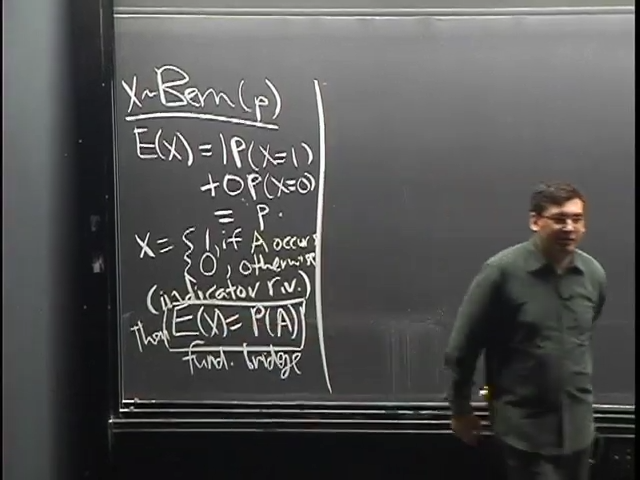 X~Bern(p)
E(X) = 1P(X=1)
+0P(X=0)
= p.
X = { 1, if A occurs
0, otherwise
(indicator r.v.)
Then E(X) = P(A)
fund. bridge